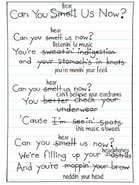 hear
Can You Smell Us Now?
hear
Can you smell us now?
listenin' to music
You're sweatin' indigestion
and your stomach's in knots
you're movin' your feet
hear
Can you smell us now?
can't believe your eardrums
You better check your
underwear
'Cause I'm seein' spots
this music blowers
hear
Can you smell us now?
headphones
We're filling up your nostrils
And you're moppin' your brow
noddin' your head